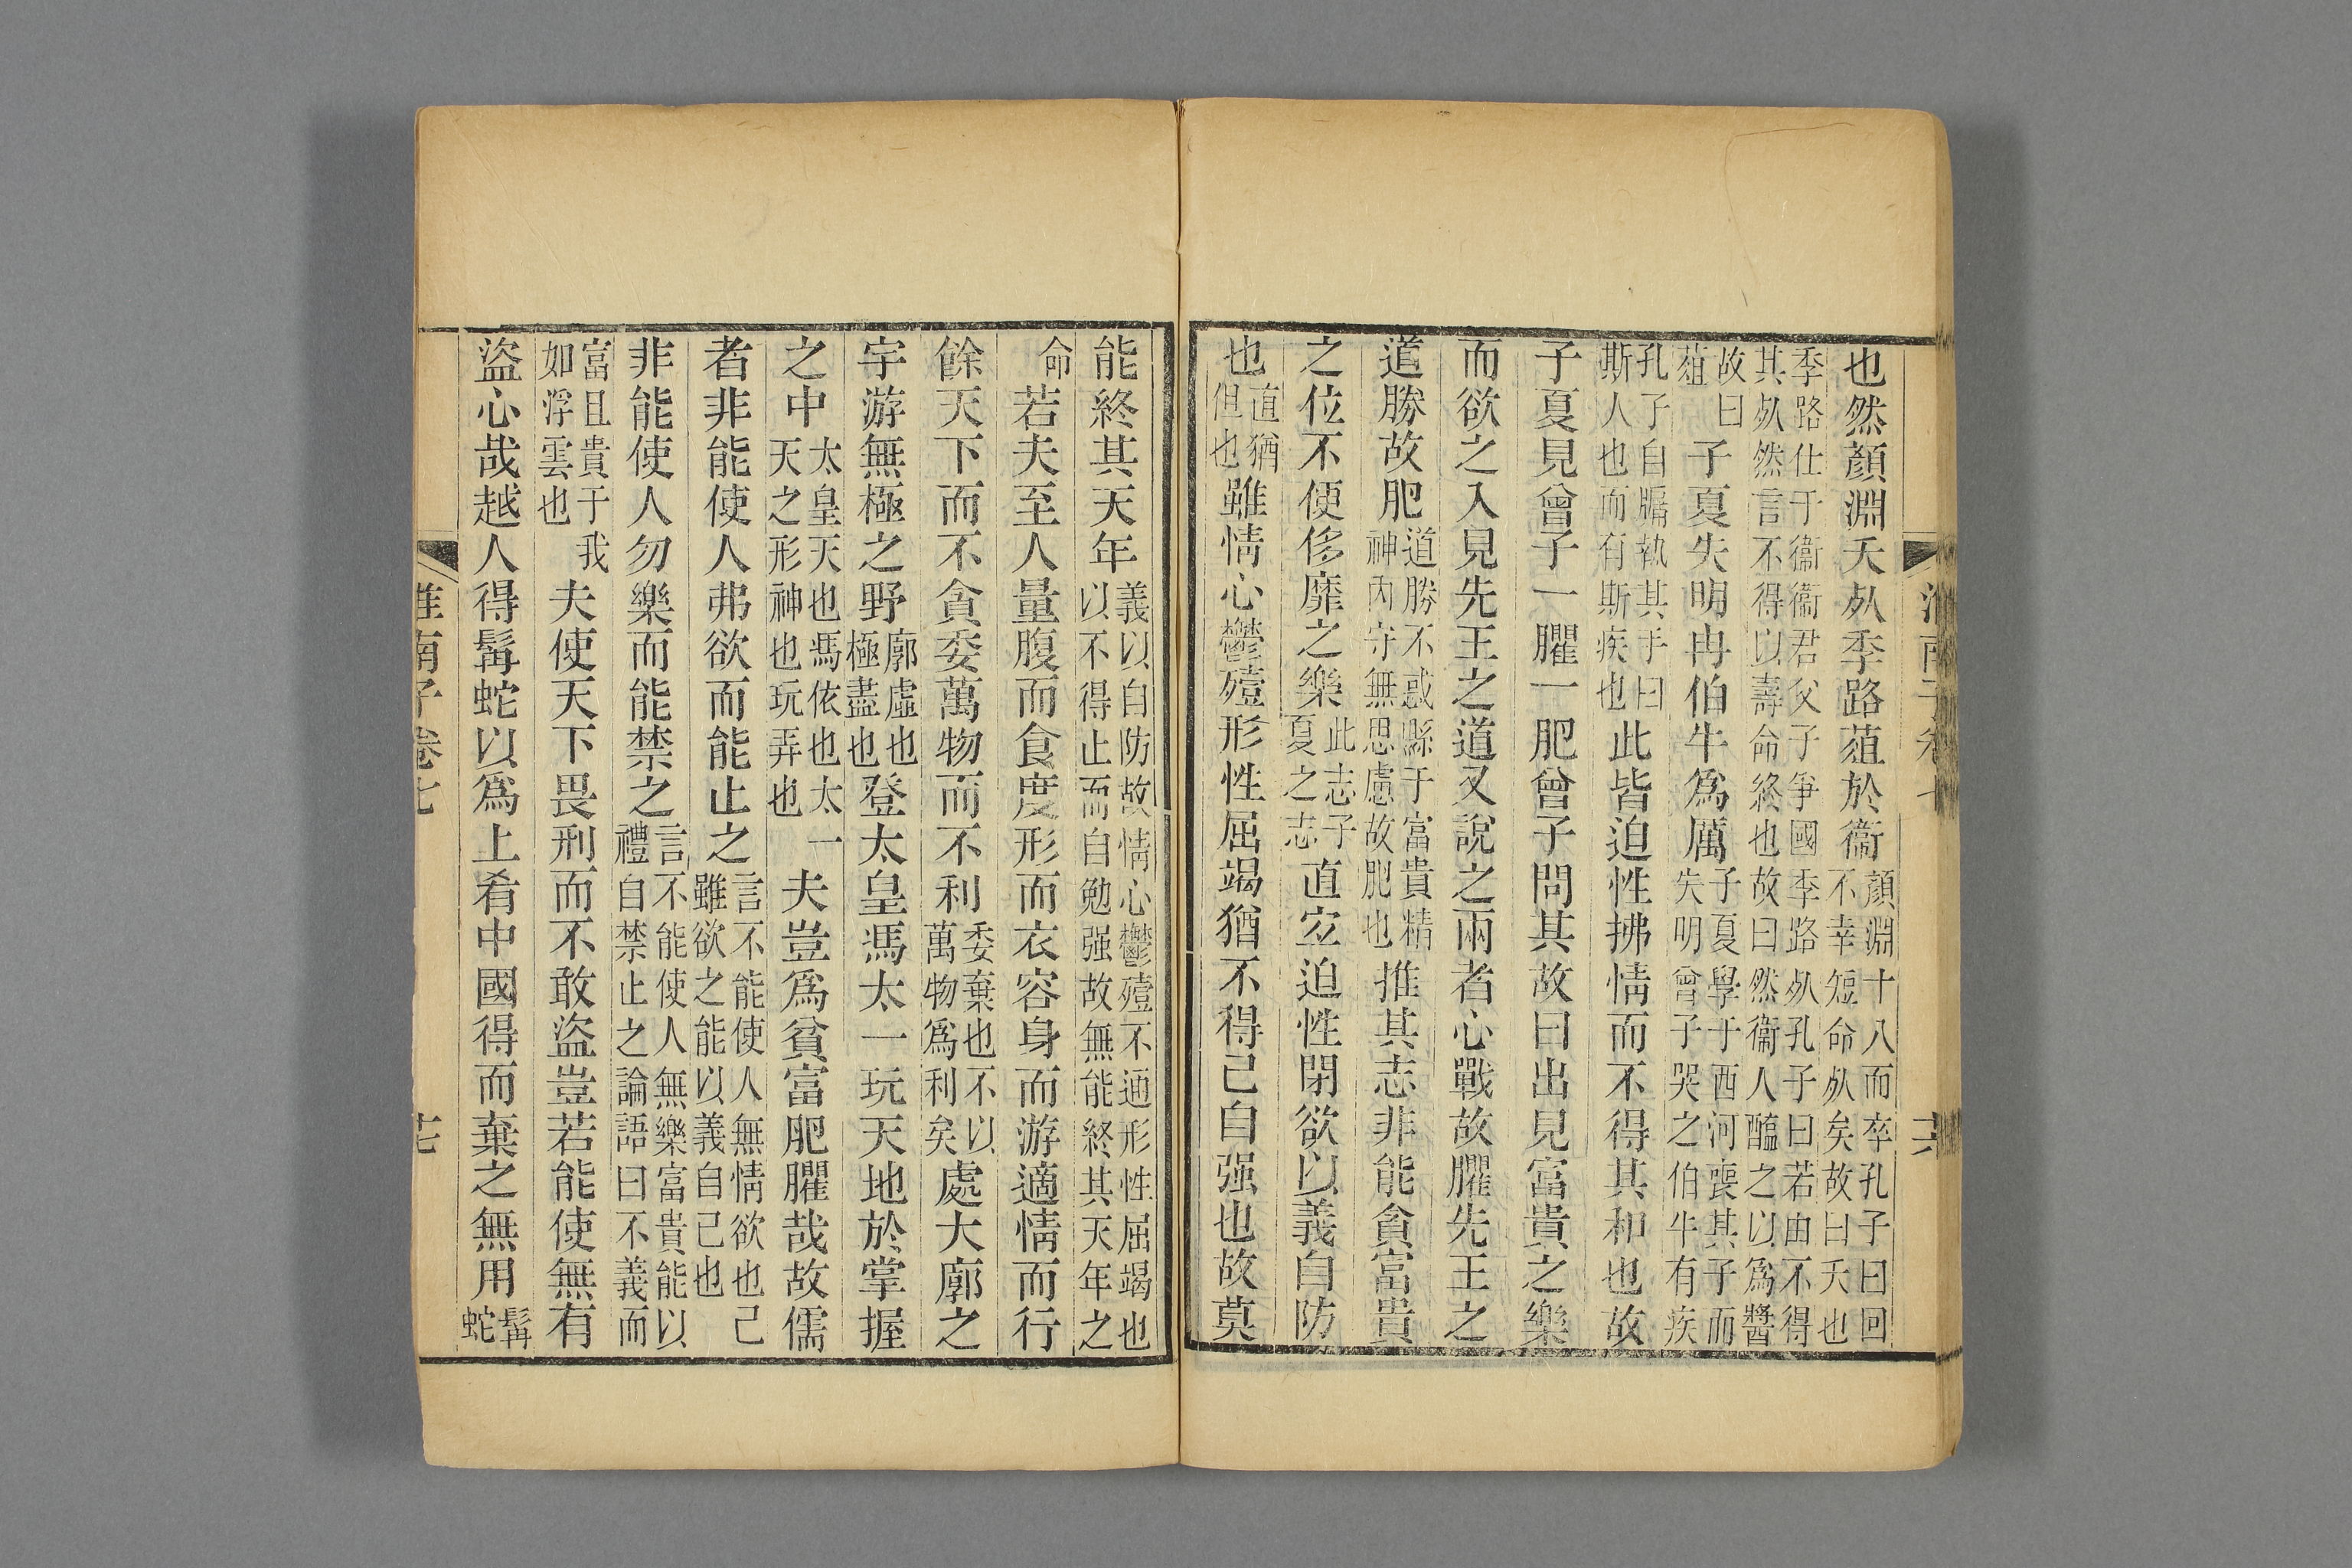 也然顏淵夭死季路葅於衞顏淵十八而卒孔子曰回不幸短命死矣故曰夭也
季路仕于衞衞君父子爭國季路死孔子曰若由不得其死然言不得以壽命終也故曰然衞人醢之以爲醬
故曰葅子夏失明冉伯牛爲厲子夏學于西河喪其子而失明曾子哭之伯牛有疾
孔子自牖執其手曰斯人也而有斯疾也此皆迫性拂情而不得其和也故
子夏見曾子一臞一肥曾子問其故曰出見富貴之樂
而欲之入見先王之道又說之兩者心戰故臞先王之
道勝故肥道勝不惑縣于富貴精神內守無思慮故肥也推其志非能貪富貴
之位不便侈靡之樂此志子夏之志直空迫性閉欲以義自防
也直猶但也雖情心鬱殪形性屈竭猶不得已自强也故莫
能終其天年義以自防故情心鬱殪不通形性屈竭也以不得止而自勉强故無能終其天年之
命若夫至人量腹而食度形而衣容身而游適情而行
餘天下而不貪委萬物而不利委棄也不以萬物爲利矣處大廓之
宇游無極之野廓虛也極盡也登太皇馮太一玩天地於掌握
之中太皇天也馮依也太一天之形神也玩弄也夫豈爲貧富肥臞哉故儒
者非能使人弗欲而能止之言不能使人無情欲也己雖欲之能以義自已也
非能使人勿樂而能禁之言不能使人無樂富貴能以禮自禁止之論語曰不義而
富且貴于我如浮雲也夫使天下畏刑而不敢盜豈若能使無有
盜心哉越人得髯蛇以爲上肴中國得而棄之無用髯蛇
淮南子卷七
十六
淮南子卷七
十七